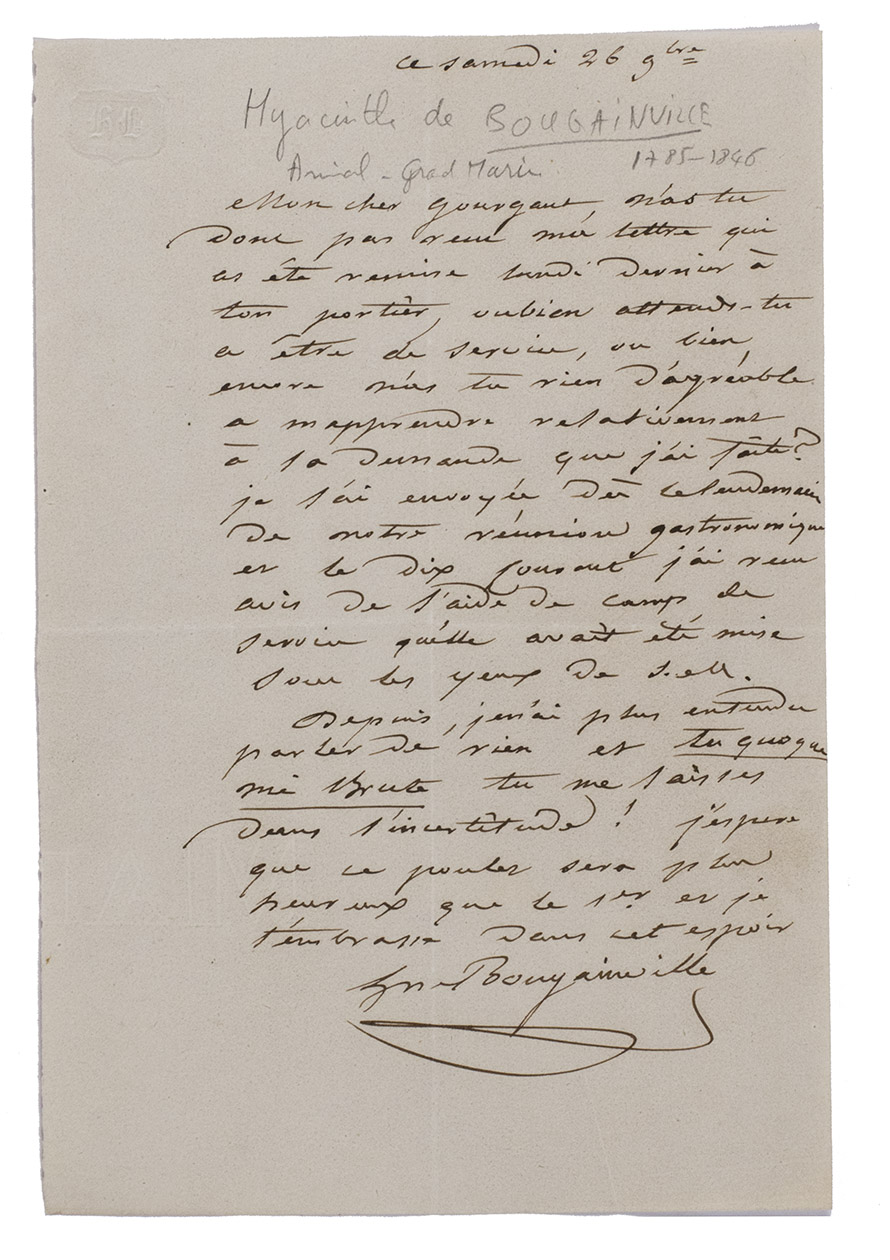 ce samedi 26 9bre
Hyacinthe de BOUGAINVILLE
Amiral - Grand Marin 1785-1846
Mon cher Gourgaut, n'as tu
donc pas recu ma lettre qui
as été remise lundi dernier à
ton portier, oubien attends-tu
a être de service, ou bien
encore n'as tu rien d'agréable
a m'apprendre relativement
à la demande que j'ai faite?
je l'ai envoyée dès le lendemain
de notre réunion gastronomique
et le dix courant j'ai recu
avis de l'aide de camp de
service qu'elle avait été mise
sous les yeux de S.M.
Depuis, je n'ai plus entendu
parler de rien et tu quoque
mi Brute tu me laisses
dans l'incertitude! j'espere
que ce poulet sera plus
heureux que le 1er et je
t'embrasse dans cet espoir
Bougainville